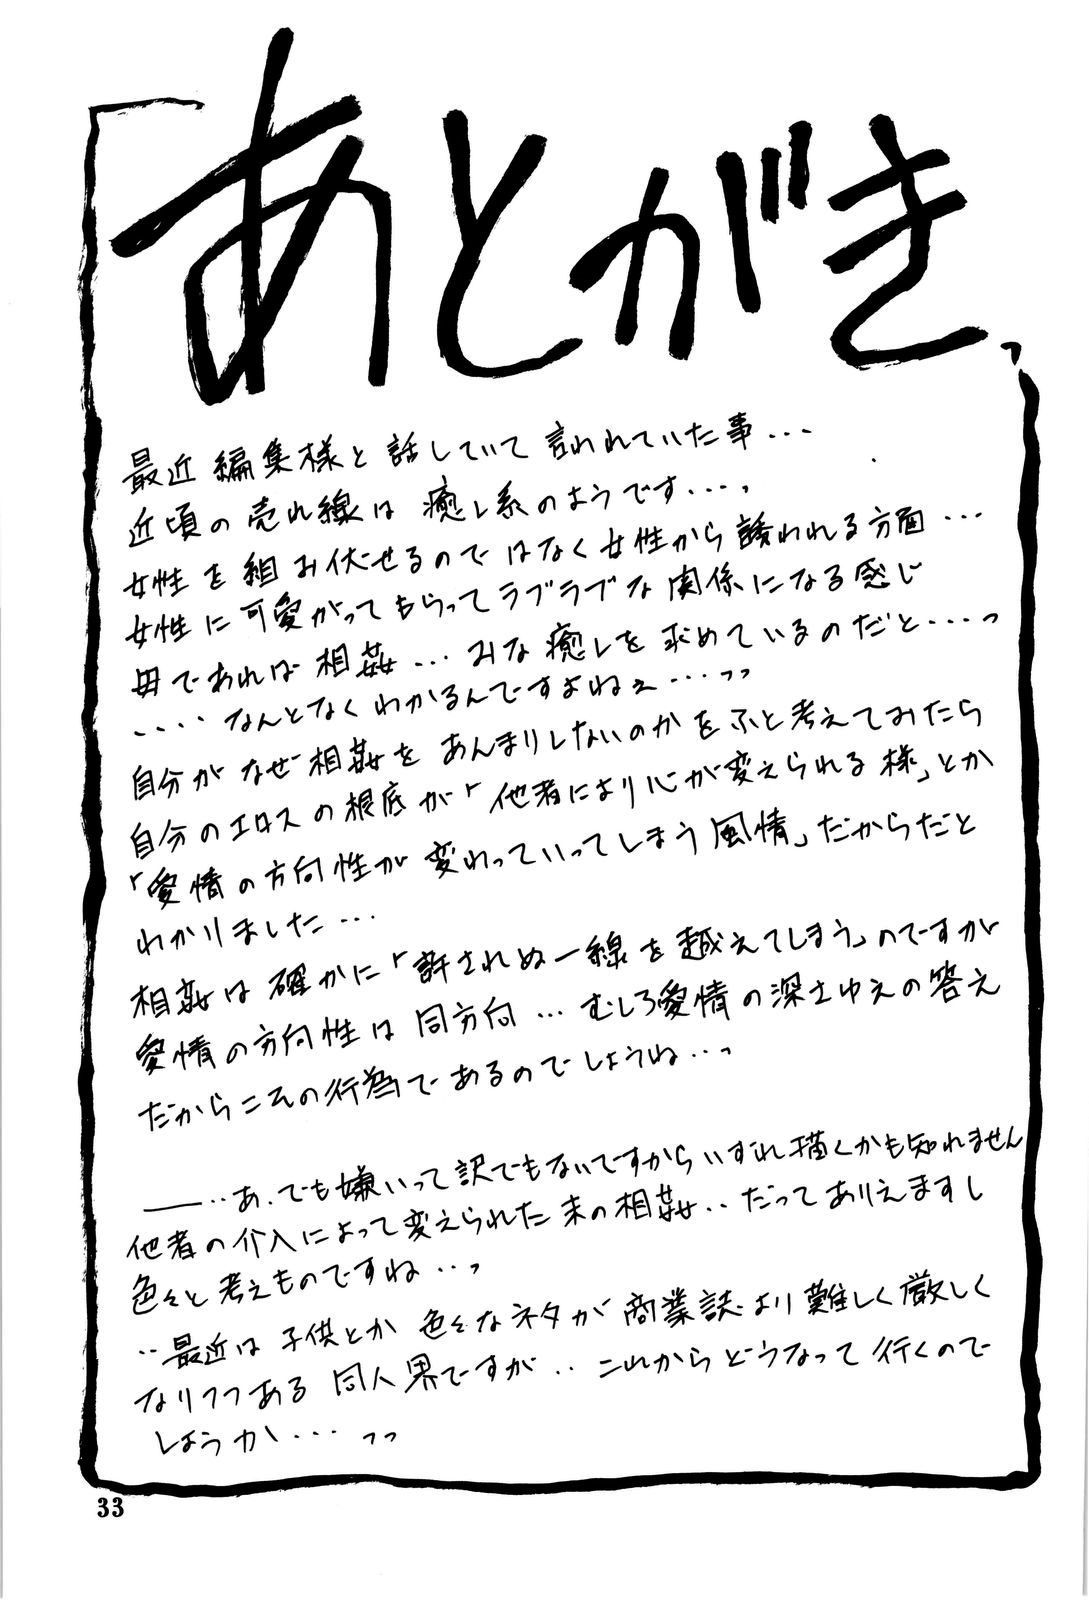 「あとがき」
最近編集様と話していて言われていた事…
近頃の売れ線は癒し系のようです…っ
女性を組み伏せるのではなく女性から誘われる方面…
女性に可愛がってもらってラブラブな関係になる感じ
母であれば相姦…みな癒しを求めているのだと…っ
‥‥なんとなくわかるんですよねぇ…っっ
自分がなぜ相姦をあんまりしないのかをふと考えてみたら
自分のエロスの根底が「他者により心が変えられる様」とか
「愛情の方向性が変わっていってしまう風情」だからだと
わかりました…
相姦は確かに「許されぬ一線を越えてしまう」のですが
愛情の方向性は同方向…むしろ愛情の深さゆえの答え
だからこその行為であるのでしょうね…っ
――‥あ、でも嫌いって訳でもないですからいずれ描くかも知れません
他者の介入によって変えられた末の相姦‥だってありえますし
色々と考えものですね…っ
‥最近は子供とか色々なネタが商業誌より難しく厳しく
なりつつある同人界ですが‥これからどうなって行くので
しょうか…っっ
33